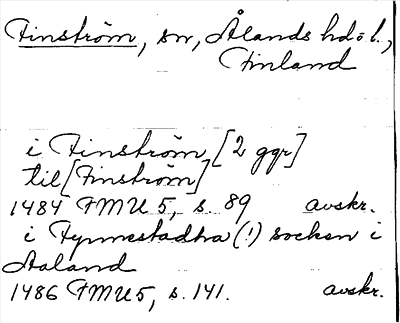 Finström, sn, Ålands hd o l.,
Finland
i Finström [2 ggr]
til [Finström]
1484 FMU 5, s. 89 avskr.
i Fynnestadha (!) socken i
Aaland
1486 FMU 5, s. 141. avskr.